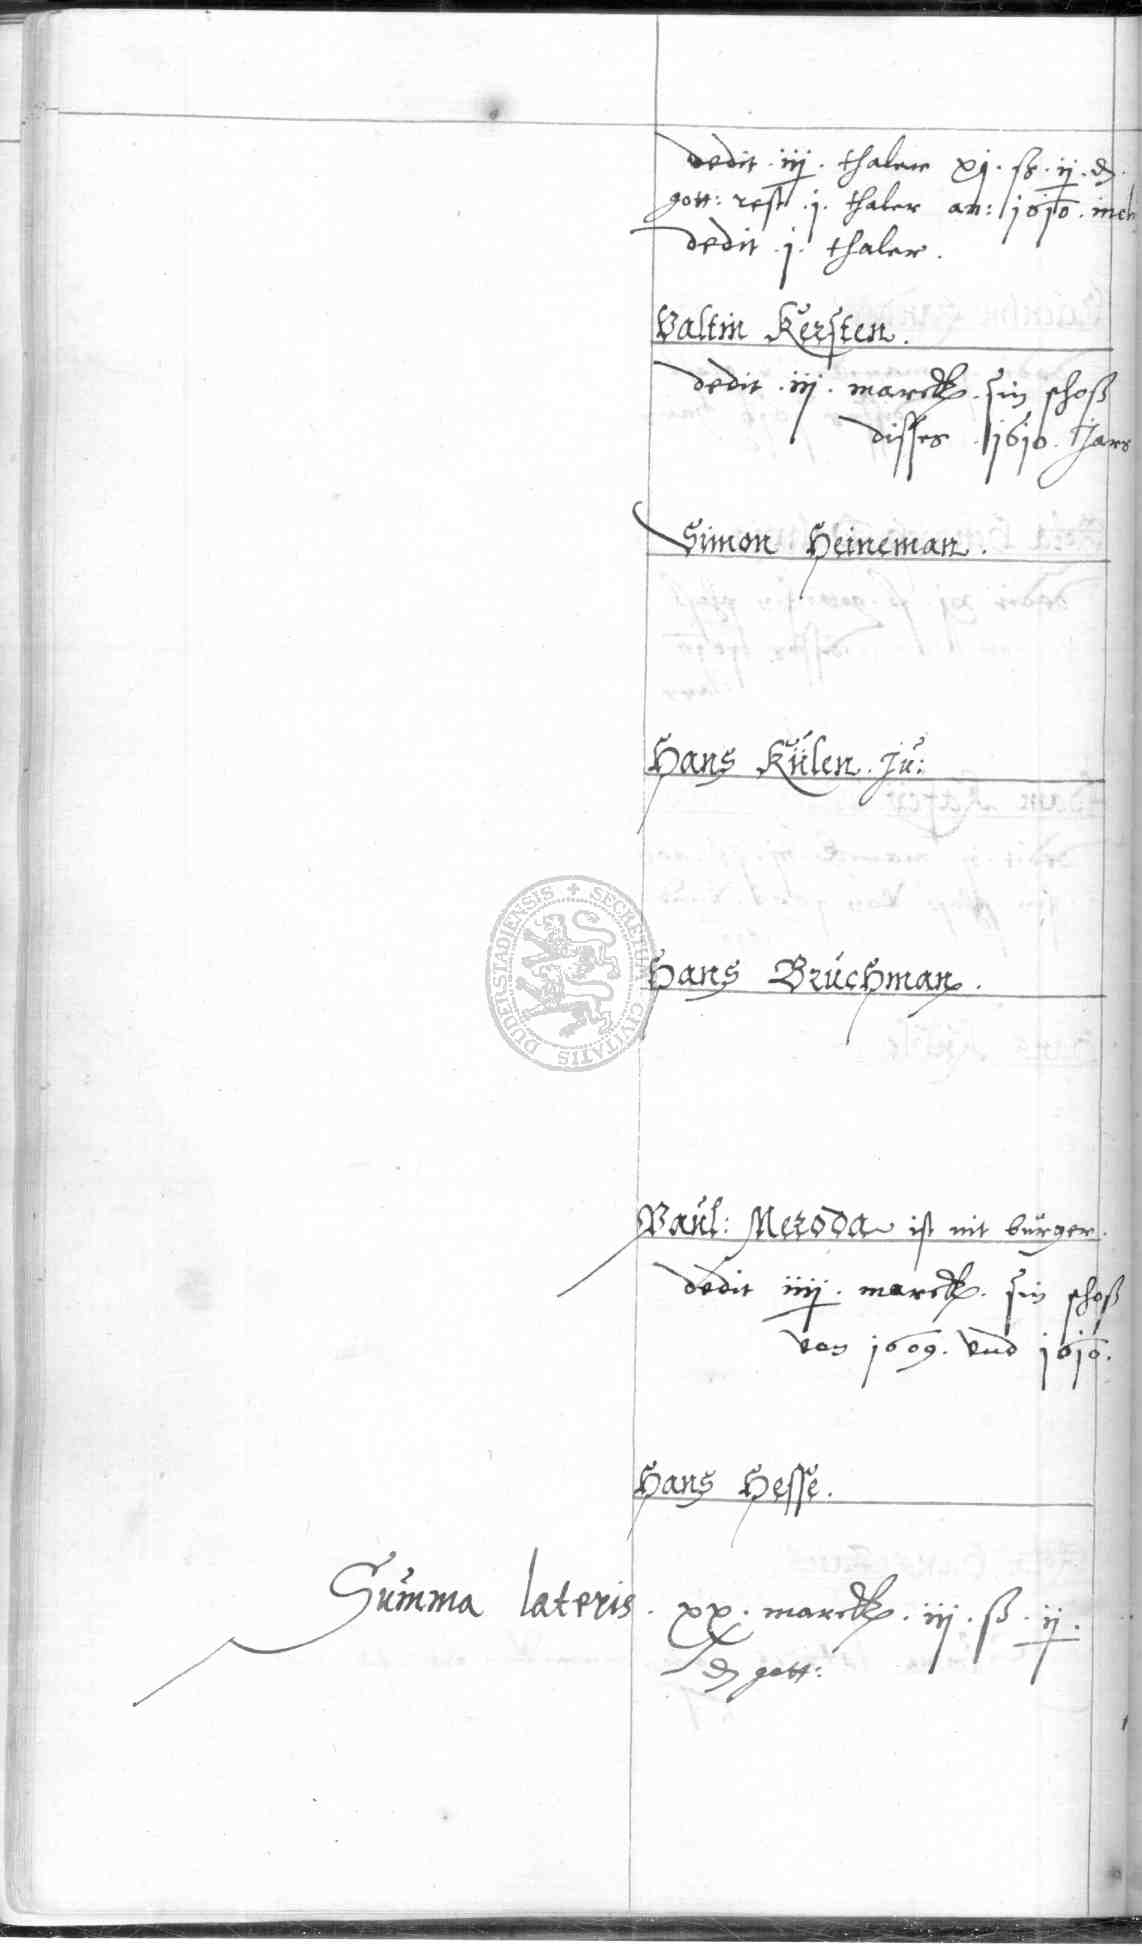 dedit . iij . thaler xj . ß . ij . ₰ .
gott: rest . j . thaler an: 1610 . incl
dedit . j . thaler .
Valtin Kersten .
dedit . iij . marck . sin schoß
disses . 1610 . Jars
Simon Heineman .
Hans Külen . Ju:
SECRETUM CIVITATIS DUDERSTADIENSIS
Hans Bruchman .
Paul: Meroda ist nit burger .
dedit iiij . marck . sin schoß
von 1609 . vnd 1610 .
Hans Hesse .
Summa lateris . xx . marck . iij . ß . ij .
₰ gott: